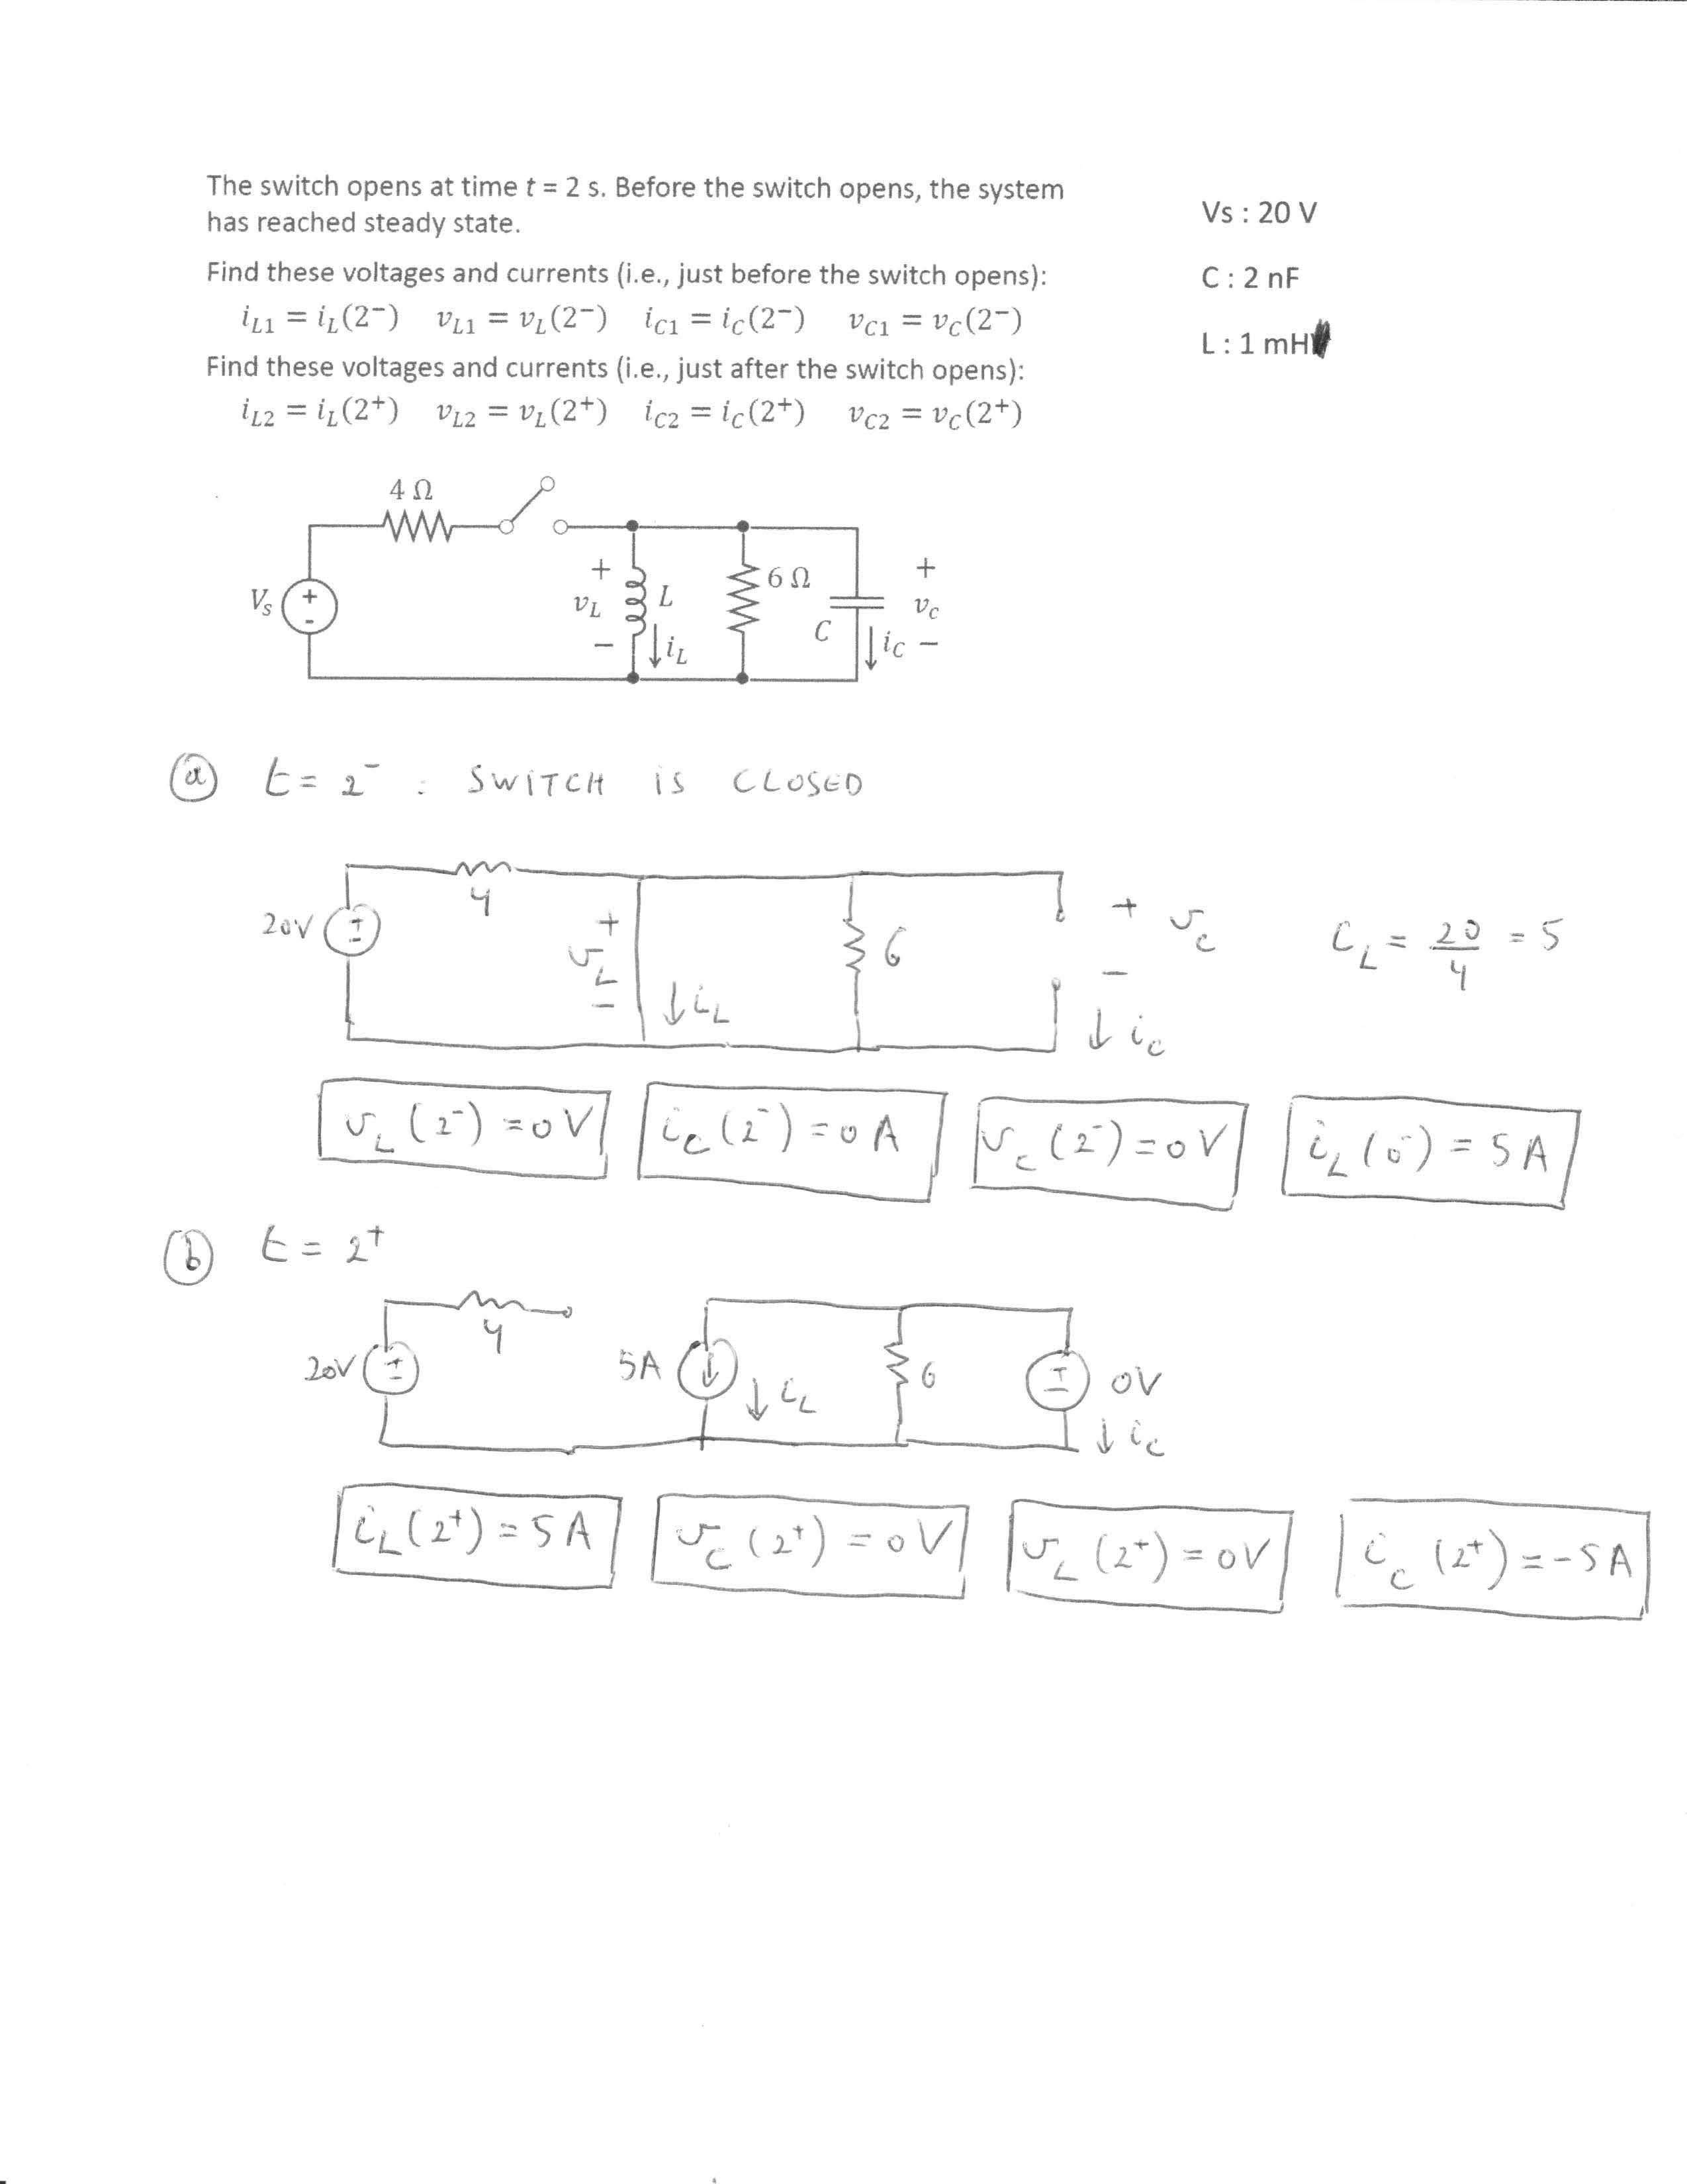 The switch opens at time t = 2 s. Before the switch opens, the system
has reached steady state.
Vs : 20 V
Find these voltages and currents (i.e., just before the switch opens):
C : 2 nF
i_{L1} = i_L(2⁻) v_{L1} = v_L(2⁻) i_{C1} = i_C(2⁻) v_{C1} = v_C(2⁻)
L : 1 mH
Find these voltages and currents (i.e., just after the switch opens):
i_{L2} = i_L(2⁺) v_{L2} = v_L(2⁺) i_{C2} = i_C(2⁺) v_{C2} = v_C(2⁺)
4 Ω
V_s + -
+ v_L -
L
↓ i_L
6 Ω
C
+ v_C -
↓ i_C
(a) t = 2⁻ : SWITCH IS CLOSED
20V + -
4
+ v_L -
↓ i_L
6
+ v_C -
↓ i_C
i_L = 20/4 = 5
v_L(2⁻) = 0 V
i_C(2⁻) = 0 A
v_C(2⁻) = 0 V
i_L(0⁻) = 5 A
(b) t = 2⁺
20V + -
4
5A ↓
↓ i_L
6
+ - 0V
↓ i_C
i_L(2⁺) = 5 A
v_C(2⁺) = 0 V
v_L(2⁺) = 0 V
i_C(2⁺) = -5 A